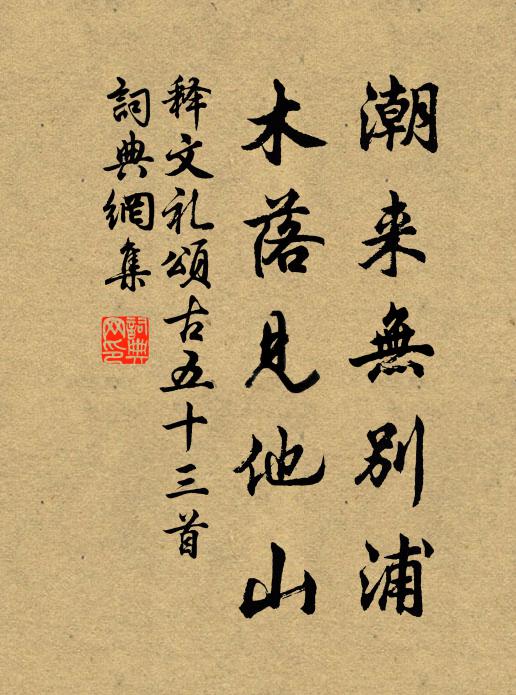 潮来無別浦
木落見他山
释文礼頌古五十三首
詞典網集
詞典网印